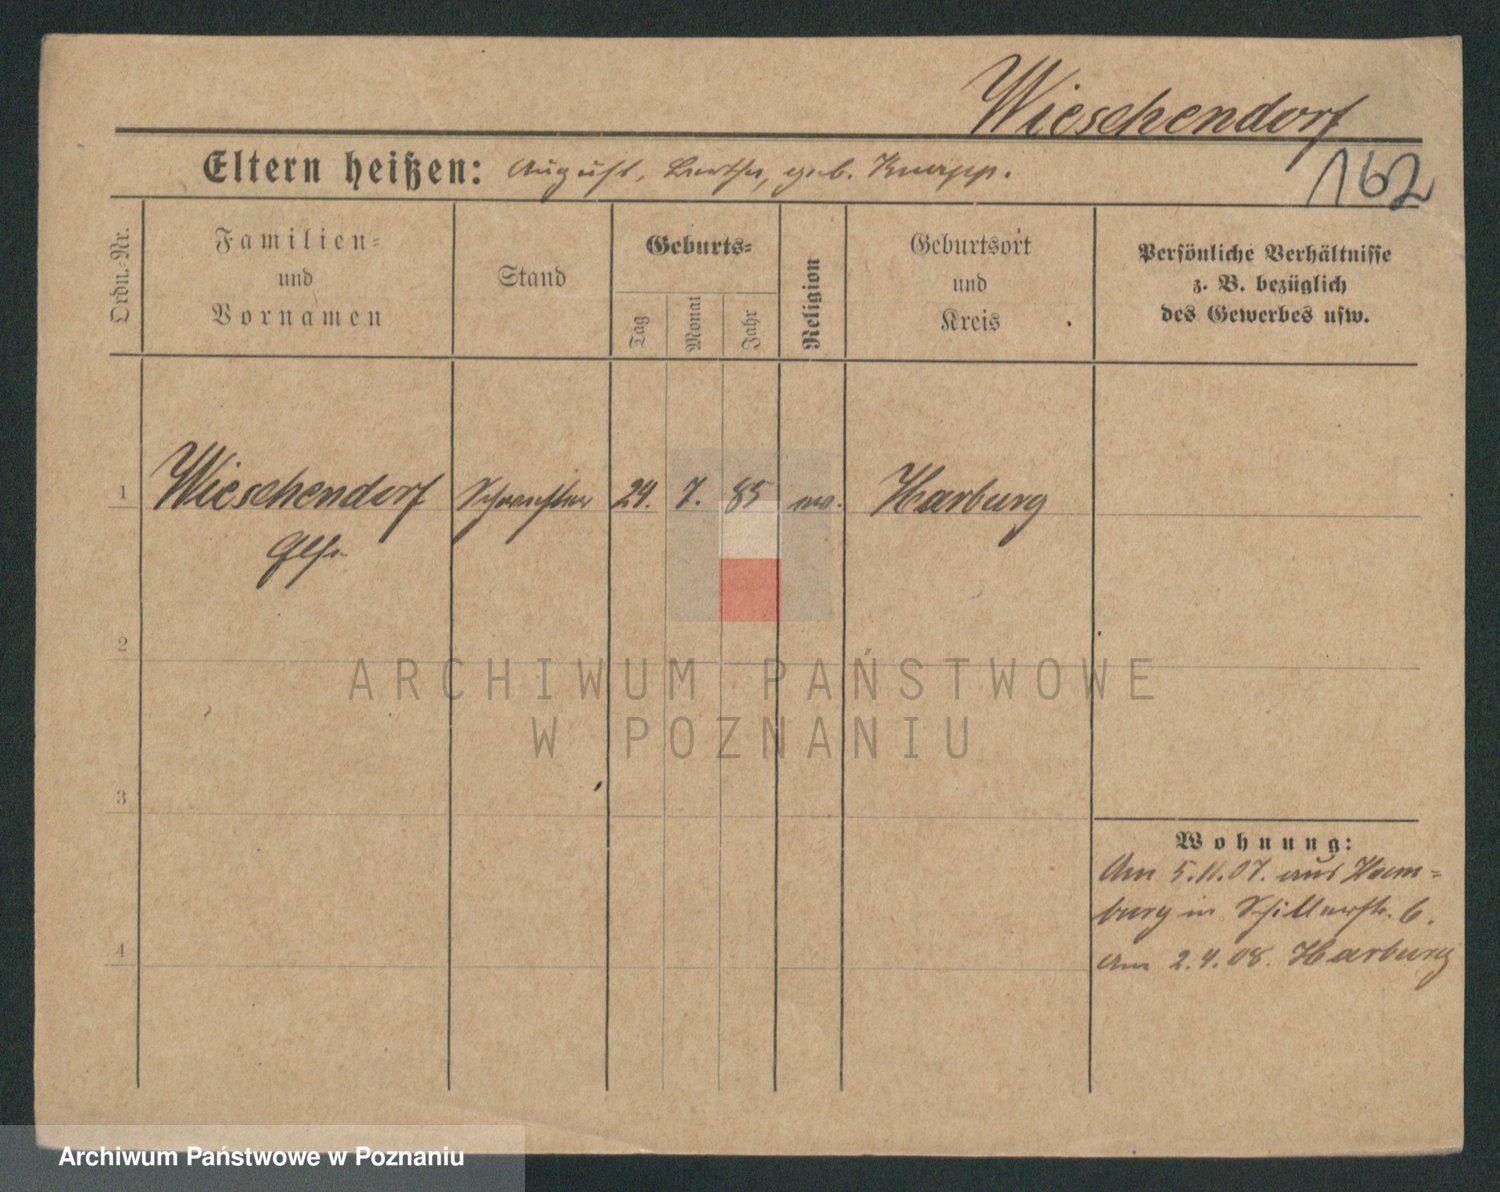 Wieschendorf
162
Eltern heißen: August, Bertha, geb. Knapp.
Ordn.-Nr.
Familien-
und
Vornamen
Stand
Geburts-
Tag
Monat
Jahr
Religion
Geburtsort
und
Kreis
Persönliche Verhältnisse
z. B. bezüglich
des Gewerbes usw.
1 Wieschendorf 24. 7. 85 ev. Harburg
2
3
4
Wohnung:
Am 5.11.07. aus Ham-
burg in Schillerstr. 6.
Am 2.4.08. Harburg
ARCHIWUM PAŃSTWOWE
W POZNANIU
Archiwum Państwowe w Poznaniu